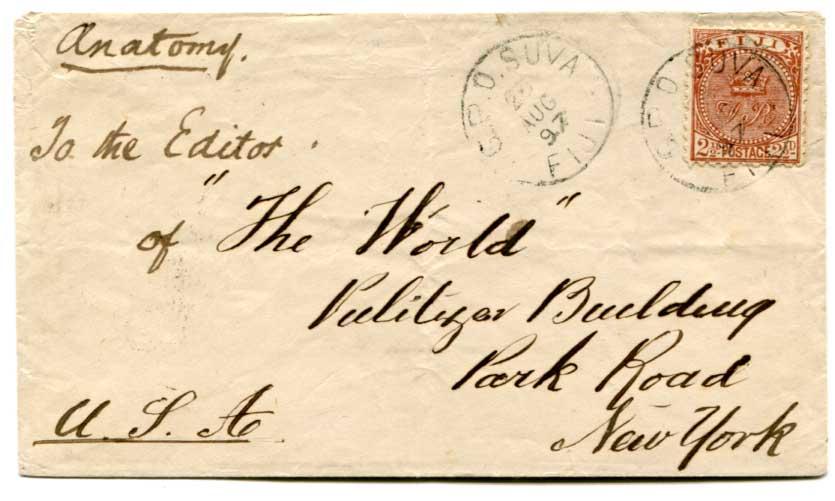 Anatomy.
To the Editor
of "The World"
Pulitzer Building
Park Road
New York
U. S. A.
G.P.O. SUVA
AUG
97
FIJI
FIJI
2½D POSTAGE 2½D
G.P.O. SUVA
FIJI